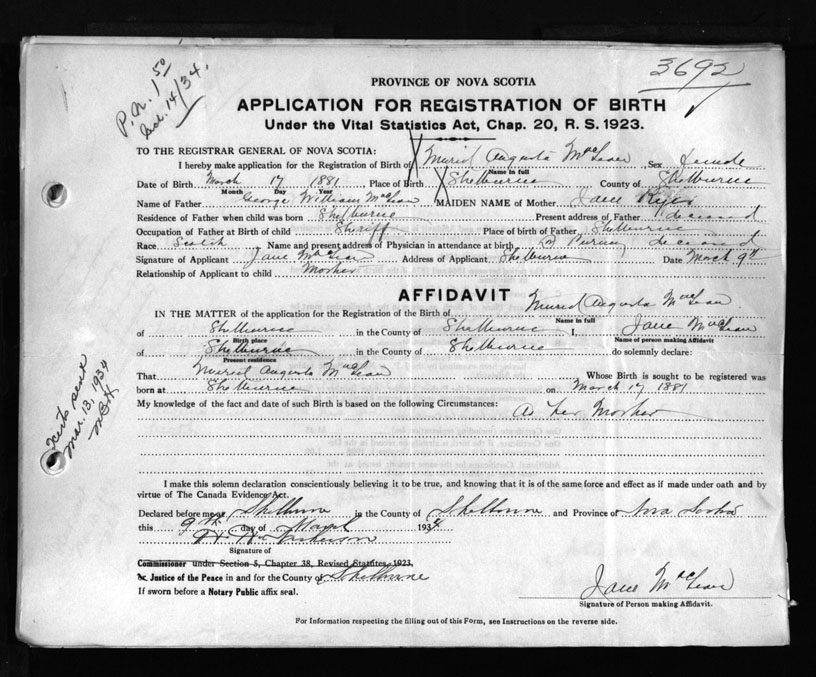 3692
P.N. 1 50
14/34.
PROVINCE OF NOVA SCOTIA
APPLICATION FOR REGISTRATION OF BIRTH
Under the Vital Statistics Act, Chap. 20, R. S. 1923.
TO THE REGISTRAR GENERAL OF NOVA SCOTIA:
I hereby make application for the Registration of Birth of Muriel Augusta MacLean Sex Female
Name in full
Date of Birth March 17 1881 Place of Birth Shelburne County of Shelburne
Month Day Year
Name of Father George William MacLean MAIDEN NAME of Mother Jane
Residence of Father when child was born Shelburne Present address of Father deceased
Occupation of Father at Birth of child Sheriff Place of birth of Father Shelburne
Race Scotch Name and present address of Physician in attendance at birth Dr deceased
Signature of Applicant Jane McLean Address of Applicant Shelburne Date March 9th
Relationship of Applicant to child Mother
AFFIDAVIT
IN THE MATTER of the application for the Registration of the Birth of Muriel Augusta MacLean
Name in full
of Shelburne in the County of Shelburne I, Jane MacLean
Birth place Name of person making Affidavit
of Shelburne in the County of Shelburne do solemnly declare:
Present residence
That Muriel Augusta MacLean Whose Birth is sought to be registered was
born at Shelburne on March 17 1881
My knowledge of the fact and date of such Birth is based on the following Circumstances:
As her Mother
Mar. 13, 1934
I make this solemn declaration conscientiously believing it to be true, and knowing that it is of the same force and effect as if made under oath and by
virtue of The Canada Evidence Act.
Declared before me at Shelburne in the County of Shelburne and Province of Nova Scotia
this 9th day of March 1934
Signature of
Commissioner under Section 5, Chapter 38, Revised Statutes, 1923,
Justice of the Peace in and for the County of Shelburne
If sworn before a Notary Public affix seal.
Jane McLean
Signature of Person making Affidavit.
For Information respecting the filling out of this Form, see Instructions on the reverse side.